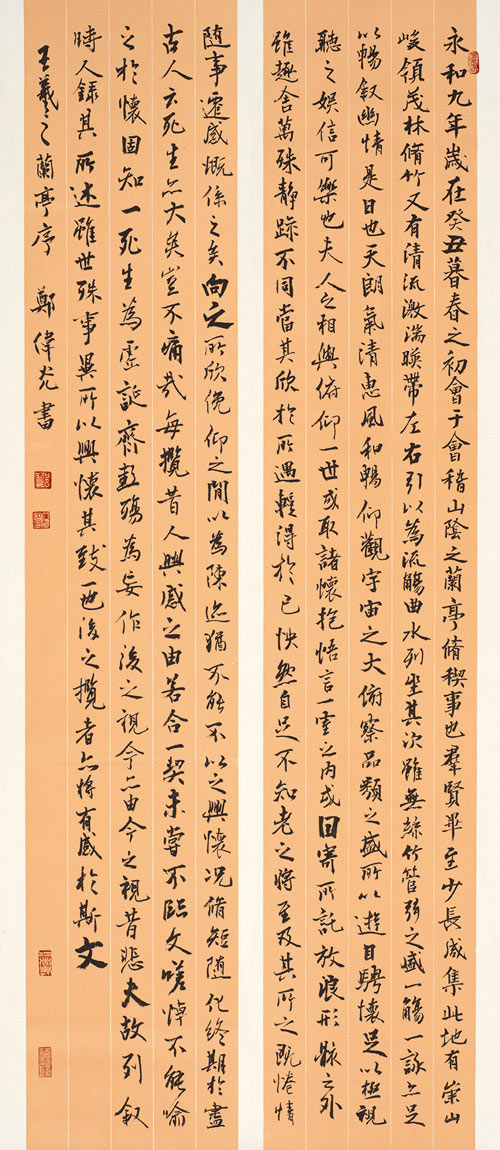 永和九年歲在癸丑暮春之初會于會稽山陰之蘭亭脩稧事也羣賢畢至少長咸集此地有崇山
峻領茂林脩竹又有清流激湍暎帶左右引以為流觴曲水列坐其次雖無絲竹管弦之盛一觴一詠亦足
以暢敘幽情是日也天朗氣清惠風和暢仰觀宇宙之大俯察品類之盛所以遊目騁懷足以極視
聽之娛信可樂也夫人之相與俯仰一世或取諸懷抱悟言一室之內或因寄所託放浪形骸之外
雖趣舍萬殊靜躁不同當其欣於所遇蹔得於己怏然自足不知老之將至及其所之既惓情
隨事遷感慨係之矣向之所欣俛仰之間以為陳迹猶不能不以之興懷況脩短隨化終期於盡
古人云死生亦大矣豈不痛哉每攬昔人興感之由若合一契未嘗不臨文嗟悼不能喻
之於懷固知一死生為虛誕齊彭殤為妄作後之視今亦由今之視昔悲夫故列敘
時人錄其所述雖世殊事異所以興懷其致一也後之攬者亦將有感於斯文
王羲之蘭亭序 鄭偉光書